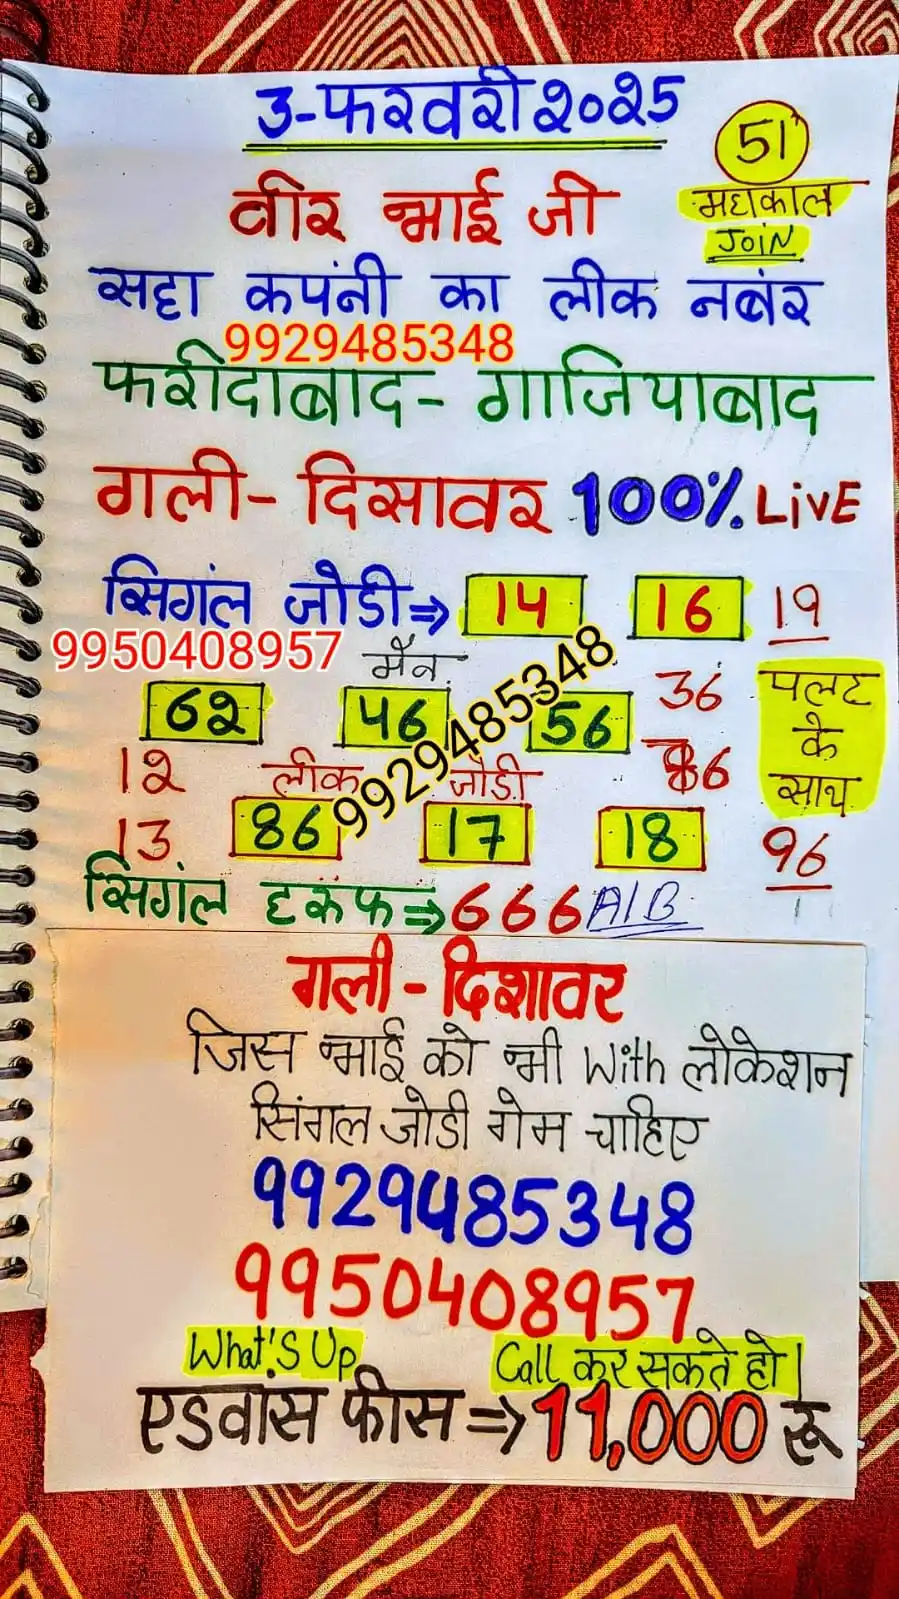 3-फरवरी २०२5
51
महाकाल
JOiN
वीर भाई जी
सट्टा कपंनी का लीक नबंर
9929485348
फरीदाबाद- गाजियाबाद
गली- दिसावर 100% LiVE
सिगंल जोडी⇒ 14 16 19
9950408957
मैन
62 46 56 36
9929485348
पलट
के
साथ
12 लीक जोडी 86
13 86 17 18 96
सिगंल हरुफ⇒ 666 A/B
गली-दिशावर
जिस भाई को भी With लोकेशन
सिंगल जोडी गेम चाहिए
9929485348
9950408957
What'S Up Call कर सकते हो।
एडवांस फीस ⇒ 11,000 रू